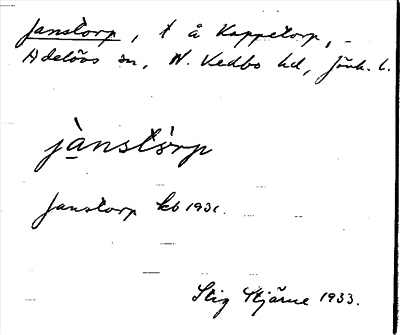 Janstorp, t å Koppetorp, -
Adelövs sn, N. Vedbo hd, Jönk. l.
jà̱nstò̱rp
Janstorp kb 1931.
Stig Stjärne 1933.